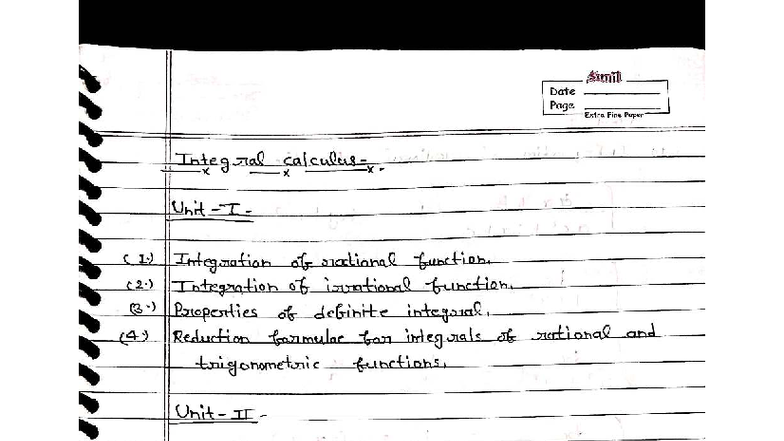 Sunil
Date
Page
Extra Fine Paper
Integral calculus-
Unit-I-
(1.) Integration of rational function.
(2.) Integration of irrational function.
(3.) Properties of definite integral.
(4.) Reduction formulae for integrals of rational and
trigonometric functions.
Unit-II-